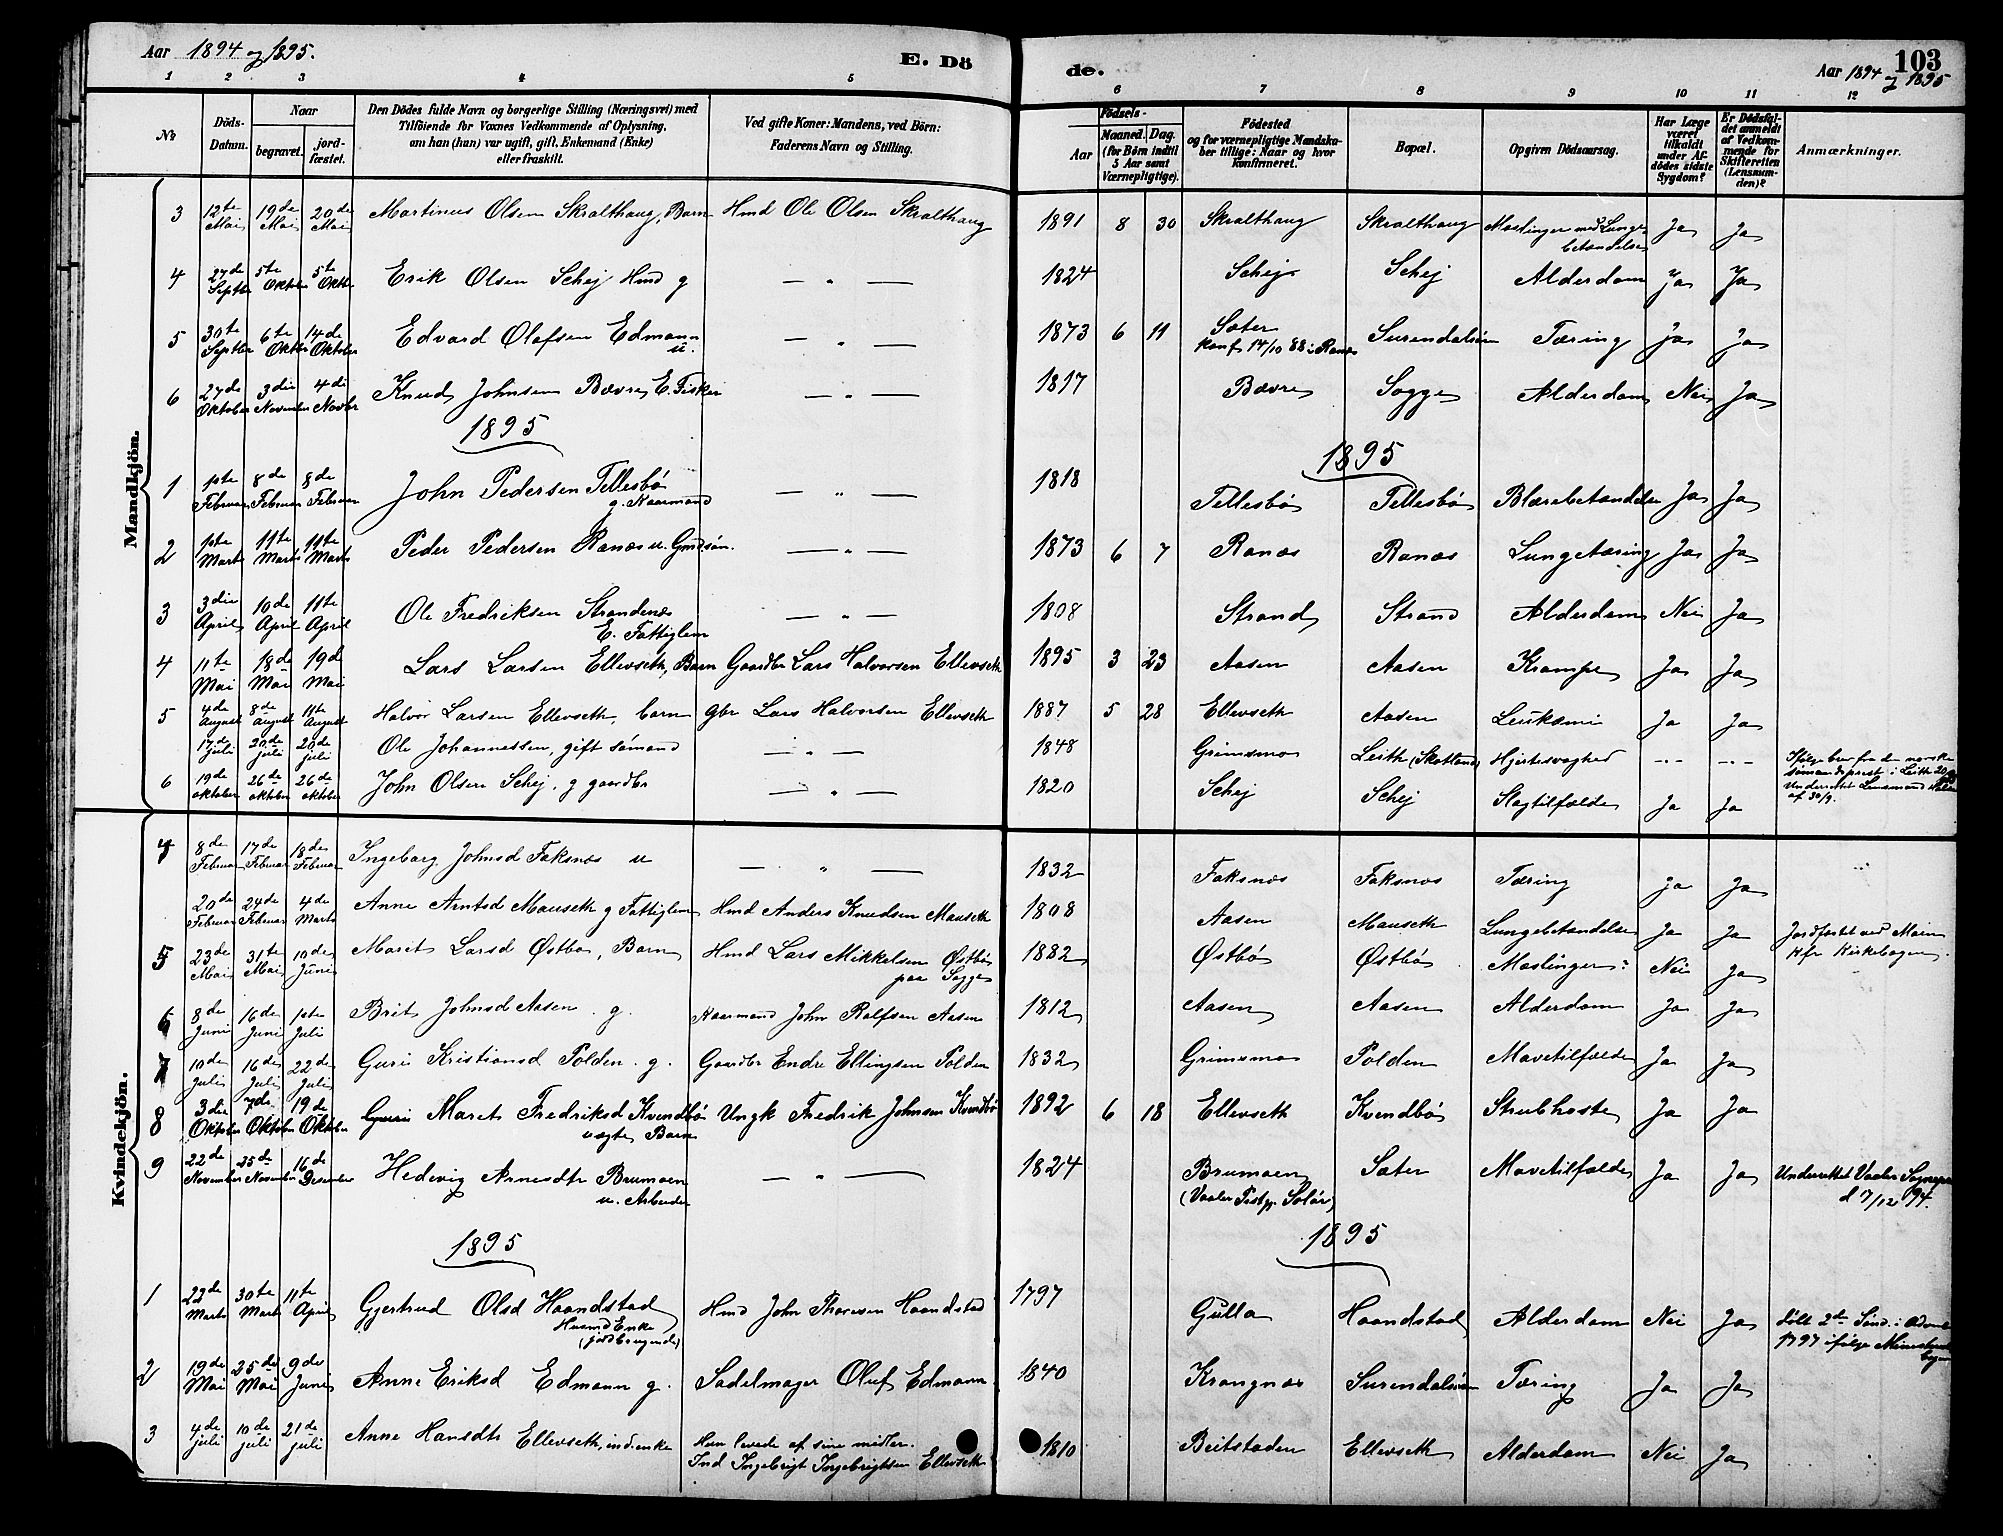 Aar 1894 og 1895.
E. Dö
de.
Aar 1894 og 1895
103
1 2 3 4 5 6 7 8 9 10 11 12
No
Döds-Datum.
Naar begravet. jordfæstet.
Den Dödes fulde Navn og borgerlige Stilling (Næringsvei) med Tilföiende for Voxnes Vedkommende af Oplysning, om han (hun) var ugift, gift, Enkemand (Enke) eller fraskilt.
Ved gifte Koner: Mandens, ved Börn: Faderens Navn og Stilling.
Födsels- Aar Maaned. Dag. (for Börn indtil 5 Aar samt Værnepligtige).
Födested og for værnepligtige Mandskaber tillige: Naar og hvor konfirmeret.
Bopæl.
Opgiven Dödsaarsag.
Har Læge været tilkaldt under Afdödes sidste Sygdom?
Er Dödsfaldet anmeldt af Vedkommende for Skifteretten (Lensmanden)?
Anmærkninger.
Mandkjön.
3 12te Mai 19de Mai 20de Mai Martinus Olsen Skralthaug, Barn Hmd Ole Olsen Skralthaug 1891 8 30 Skralthaug Skralthaug Mæslinger med Lungebetændelse Ja Ja
4 27de Septbr 5te Oktober 5te Oktbr Erik Olsen Schej Hmd g — " — 1824 Schej Schej Alderdom Ja Ja
5 30te Septbr 6te Oktbr 14de Oktober Edvard Olafsen Edmann u. — " — 1873 6 11 Sæter konf 14/10 88 i Ranæs Surendalsören Tæring Ja Ja
6 27de Oktober 3die November 4de Novbr Knud Johnsen Bævre E. Fisker — " — 1817 Bævre Sogge Alderdom Nei Ja
1895
1895
1 1ste Februar 8de Februar 8de Februar John Pedersen Tellesbö g. Kaarmand — " — 1818 Tellesbö Tellesbö Blærebetændelse Ja Ja
2 1ste Marts 11te Marts 11te Marts Peder Pedersen Ranæs u. Gmdsön. — " — 1873 6 7 Ranæs Ranæs Lungetæring Ja Ja
3 3die April 10de April 11te April Ole Fredriksen Strandenæs E. Fattiglem — " — 1808 Strand Strand Alderdom Nei Ja
4 11te Mai 18de Mai 19de Mai Lars Larsen Ellevseth, Barn Gaardbr Lars Halvorsen Ellevseth 1895 3 23 Aasen Aasen Krampe Ja Ja
5 4de August 8de August 11te August Halvor Larsen Ellevseth, barn gbr Lars Halvorsen Ellevseth 1887 5 28 Ellevseth Aasen Leukæmi Ja Ja
17de juli 20de juli 20de juli Ole Johannessen, gift sömand — " — 1848 Grimsmo Leith (Skotland) Hjertesvaghed --- --- Ifölge brev fra den norske sömandsprest i Leith 20
6 19de oktober 26de oktober 26de oktober John Olsen Schej, g gaardbr — " — 1820 Schej Schej Slagtilfælde Ja Ja Underrettet Lensmand af 30/9.
Kvindekjön.
4 8de Februar 17de Februar 18de Februar Ingeborg Johnsd Foksnæs u — " — 1832 Foksnæs Foksnæs Tæring Ja Ja
20de Februar 24de Februar 4de Marts Anne Arntsd Mauseth g Fattiglem Hmd Anders Knudsen Mauseth 1808 Aasen Mauseth Lungebetændelse Ja Ja Jordfæstet ved Moen Kfr Kirkebogen.
5 23de Mai 31te Mai 10de Juni Maret Larsd Østbö, Barn Hmd Lars Mikkelsen Østbö paa Sogge 1882 Østbö Østbö Mæslinger? Nei Ja
6 8de Juni 16de Juni 1ste Juli Brit Johnsd Aasen. g. Kaarmand John Rolfsen Aasen 1812 Aasen Aasen Alderdom Ja Ja
7 10de Juli 16de Juli 22de Juli Guri Kristiansd Polden. g. Gaardbr Endre Ellingsen Polden 1832 Grimsmo Polden Mavetilfælde Ja Ja
8 3die Oktober 7de Oktober 19de Oktober Guri Maret Fredriksd Kvendbö uægte Barn Ungk Fredrik Johnsen Kvendbö 1892 6 18 Ellevseth Kvendbö Strubhoste Ja Ja
9 22de November 25de November 16de Desember Hedevig Arnesdtr Brumoen u. Arbeider — " — 1824 Brumoen (Vaaler Pstgj. Solör) Sæter Mavetilfælde Ja Ja Underrettet Vaaler Sognepr d 7/12 94.
1895
1895
1 22de Marts 30te Marts 11te April Gjertrud Olsd Haandstad Husmd Enke (jordbrugende) Hmd John Thoresen Haandstad 1797 Gulla Haandstad Alderdom Nei Ja Födt 2den Sönd. i Advent 1797 ifölge Ministerialbogen
2 19de Mai 25de Mai 9de Juni Anne Eriksd Edmann g. Sadelmager Oluf Edmann 1840 Krangnæs Surendalsören Tæring Ja Ja
3 4de juli 10de juli 21de juli Anne Hansdtr Ellevseth, ind.enke Hun levede af sine midler. Ind Ingebrigt Ingebrigtsen Ellevseth 1810 Beitstaden Ellevseth Alderdom Nei Ja